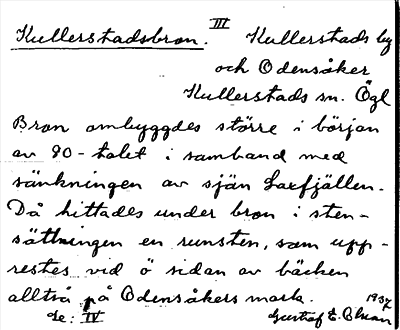 III
Kullerstadsbron. Kullerstads by
och Odensåker
Kullerstads sn. Ögl
Bron ombyggdes större i början
av 90-talet i samband med
sänkningen av sjön Laxfjällen.
Då hittades under bron i sten-
sättningen en runsten, som upp-
restes vid ö sidan av bäcken
alltså på Odensåkers mark. 1937
se: IV Gustaf E. Olsson